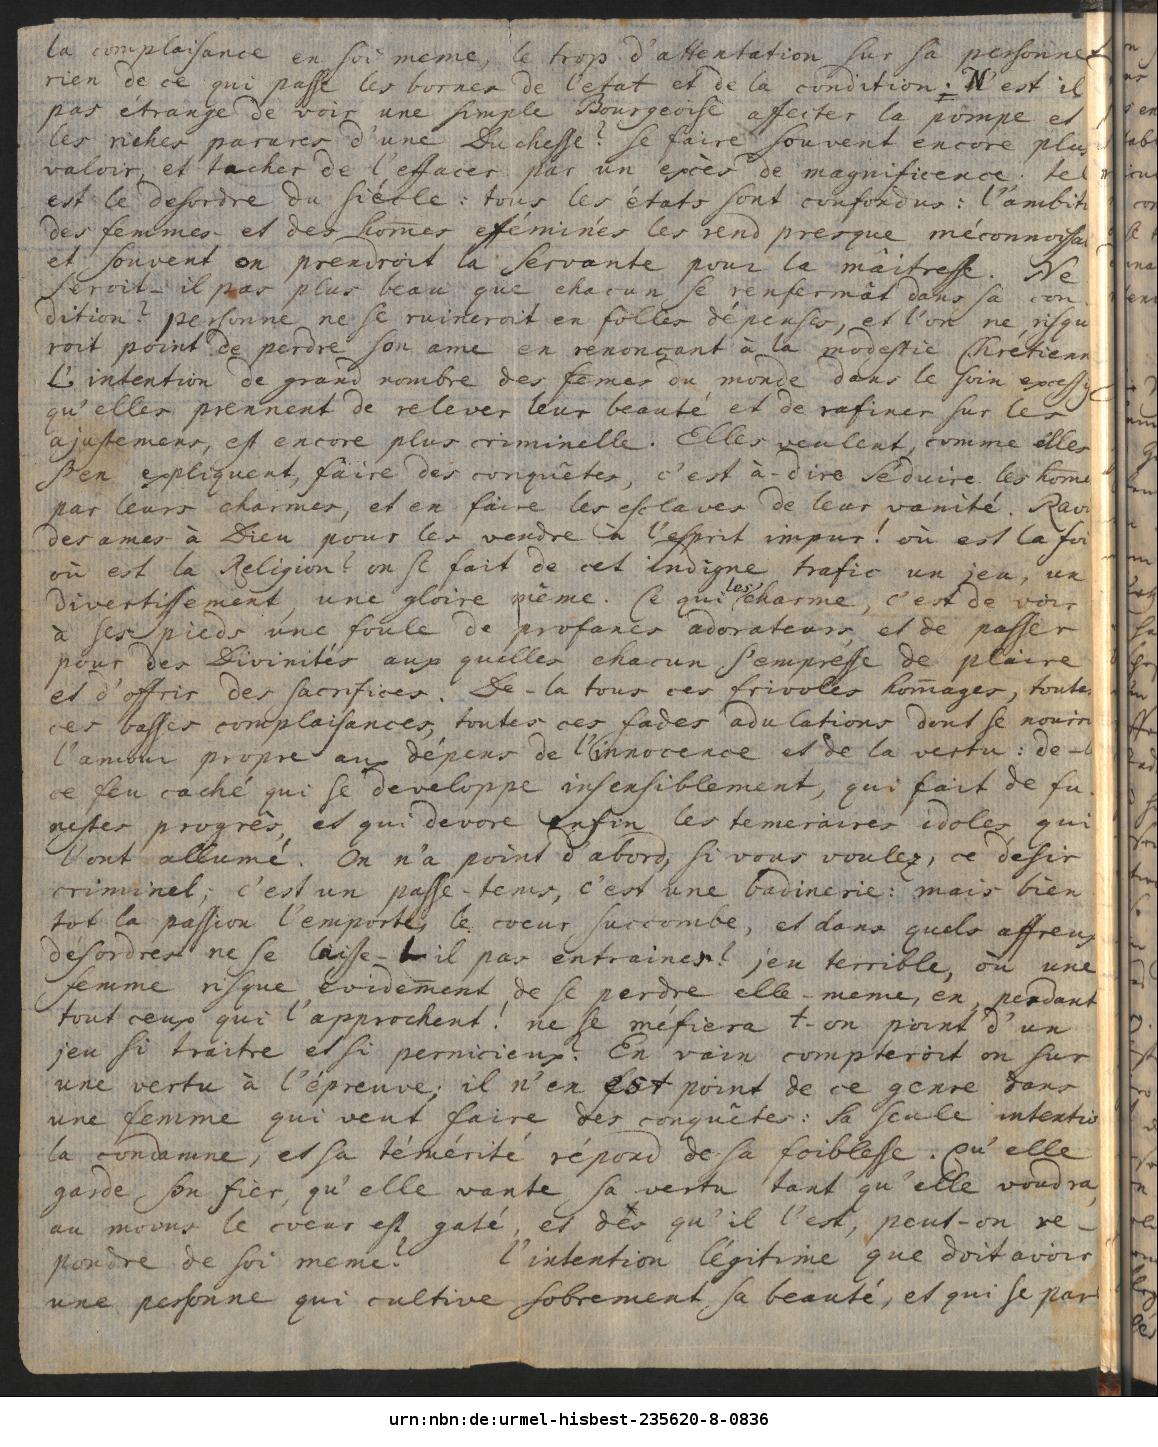 la complaisance en soi meme, le trop d'attentation sur sa personne
rien de ce qui passe les bornes de l'etat et de la condition: N'est il
pas étrange de voir une simple Bourgeoise affecter la pompe et
les riches parures d'une Duchesse? se faire souvent encore plus
valoir, et tacher de l'effacer par un excès de magnificence. tel
est le desordre du siécle: tous les états sont confondus: l'ambiti
des femmes et des hom̄es efféminés les rend presque méconnoissa
et souvent on prendroit la servante pour la maîtresse. Ne
seroit-il pas plus beau que chacun se renfermât dans sa con-
dition? personne ne se ruineroit en folles dépenses, et l'on ne risqu
roit point de perdre son ame en renonçant à la modestie Chretienn
L'intention de grand nombre des fem̄es du monde dans le soin excessif
qu'elles prennent de relever leur beauté et de rafiner sur les
ajustemens, est encore plus criminelle. Elles veulent, comme elles
s'en expliquent, faire des conquêtes, c'est à-dire séduire les hom̄e
par leurs charmes, et en faire les esclaves de leur vanité. Ravi
des ames à Dieu pour les vendre à l'esprit impur! où est la foi
où est la Religion? on se fait de cet indigne trafic un jeu, un
divertissement, une gloire même. Ce qui les charme, c'est de voir
à ses pieds une foule de profanes adorateurs, et de passer
pour des Divinités aux quelles chacun s'empresse de plaire
et d'offrir des sacrifices. De-la tous ces frivoles hom̄ages, toutes
ces basses complaisances, toutes ces fades adulations dont se nourri
l'amour propre aux dépens de l'innocence et de la vertu: de-l
ce feu caché qui se developpe insensiblement, qui fait de fu-
nestes progrès, et qui devore enfin les temeraires idoles, qui
l'ont allumé. On n'a point d'abord, si vous voulez, ce desir
criminel; c'est un passe-tems, c'est une badinerie: mais bien
tot la passion l'emporte, le coeur succombe, et dans quels affreux
désordres ne se laisse-t il pas entrainer! jeu terrible, où une
femme risque evidem̄ent de se perdre elle-meme, en perdant
tout ceux qui l'approchent! ne se méfiera t-on point d'un
jeu si traitre et si pernicieux? En vain compteroit on sur
une vertu à l'épreuve; il n'en est point de ce genre dans
une femme qui veut faire des conquêtes: sa seule intentio
la condamne, et sa témérité répond de sa foiblesse. Qu'elle
garde son fier, qu'elle vante sa vertu tant qu'elle voudra,
au moins le coeur est gaté, et dès qu'il l'est, peut-on re-
pondre de soi meme? l'intention légitime que doit avoir
une personne qui cultive sobrement sa beauté, et qui se par
urn:nbn:de:urmel-hisbest-235620-8-0836